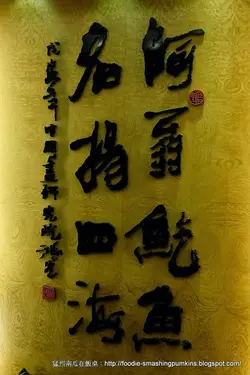 阿翁鮑魚
名揚四海
戊寅年中國畫研究院
猛烈南瓜在飯桌：http://foodie-smashingpumkins.blogspot.com/